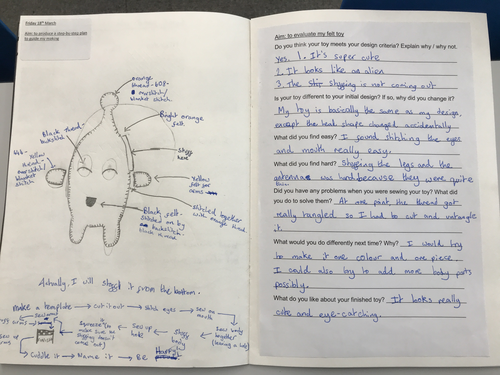 Friday 18th March
Aim: to produce a step-by-step plan
to guide my making
orange
thread
blanket stitch.
Bright orange
felt.
Black thread-
backstitch
Yellow
thread-
blanket
stitch
Stuff
here
Yellow
felt for
arms
stitched together
with orange thread
Black felt.
stitched on by
backstitch.
Actually, I will stuff it from the bottom.
make a template → cut it out → stitch eyes → sew on
mouth
sew body
together
(leaving a hole)
stuff
body
sew up
hole
squeeze (to
make sure
stuffing doesn't
come out)
cuddle it → Name it → Be Happy
Aim: to evaluate my felt toy
Do you think your toy meets your design criteria? Explain why / why not.
Yes. 1. It's super cute
2. It looks like an alien
3. The stuffing is not coming out
Is your toy different to your initial design? If so, why did you change it?
My toy is basically the same as my design,
except the head shape changed accidentally.
What did you find easy? I found stitching the eyes
and mouth really easy.
What did you find hard? Stuffing the legs and the
antenna was hard because they were quite
thin.
Did you have any problems when you were sewing your toy? What
did you do to solve them? At one point the thread got
really tangled so I had to cut and untangle
it.
What would you do differently next time? Why? I would try
to make it one colour and one piece.
I could also try to add more body parts
possibly.
What do you like about your finished toy? It looks really
cute and eye-catching.